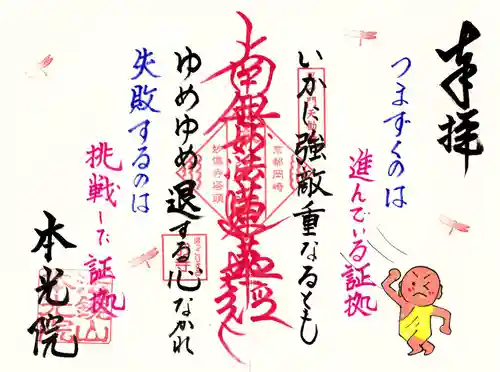 奉拝
つまずくのは
進んでいる証拠
いかに強敵重なるとも
南無妙法蓮華経
京都岡崎
妙傳寺塔頭
ゆめゆめ退する心なかれ
失敗するのは
挑戦した証拠
本光院